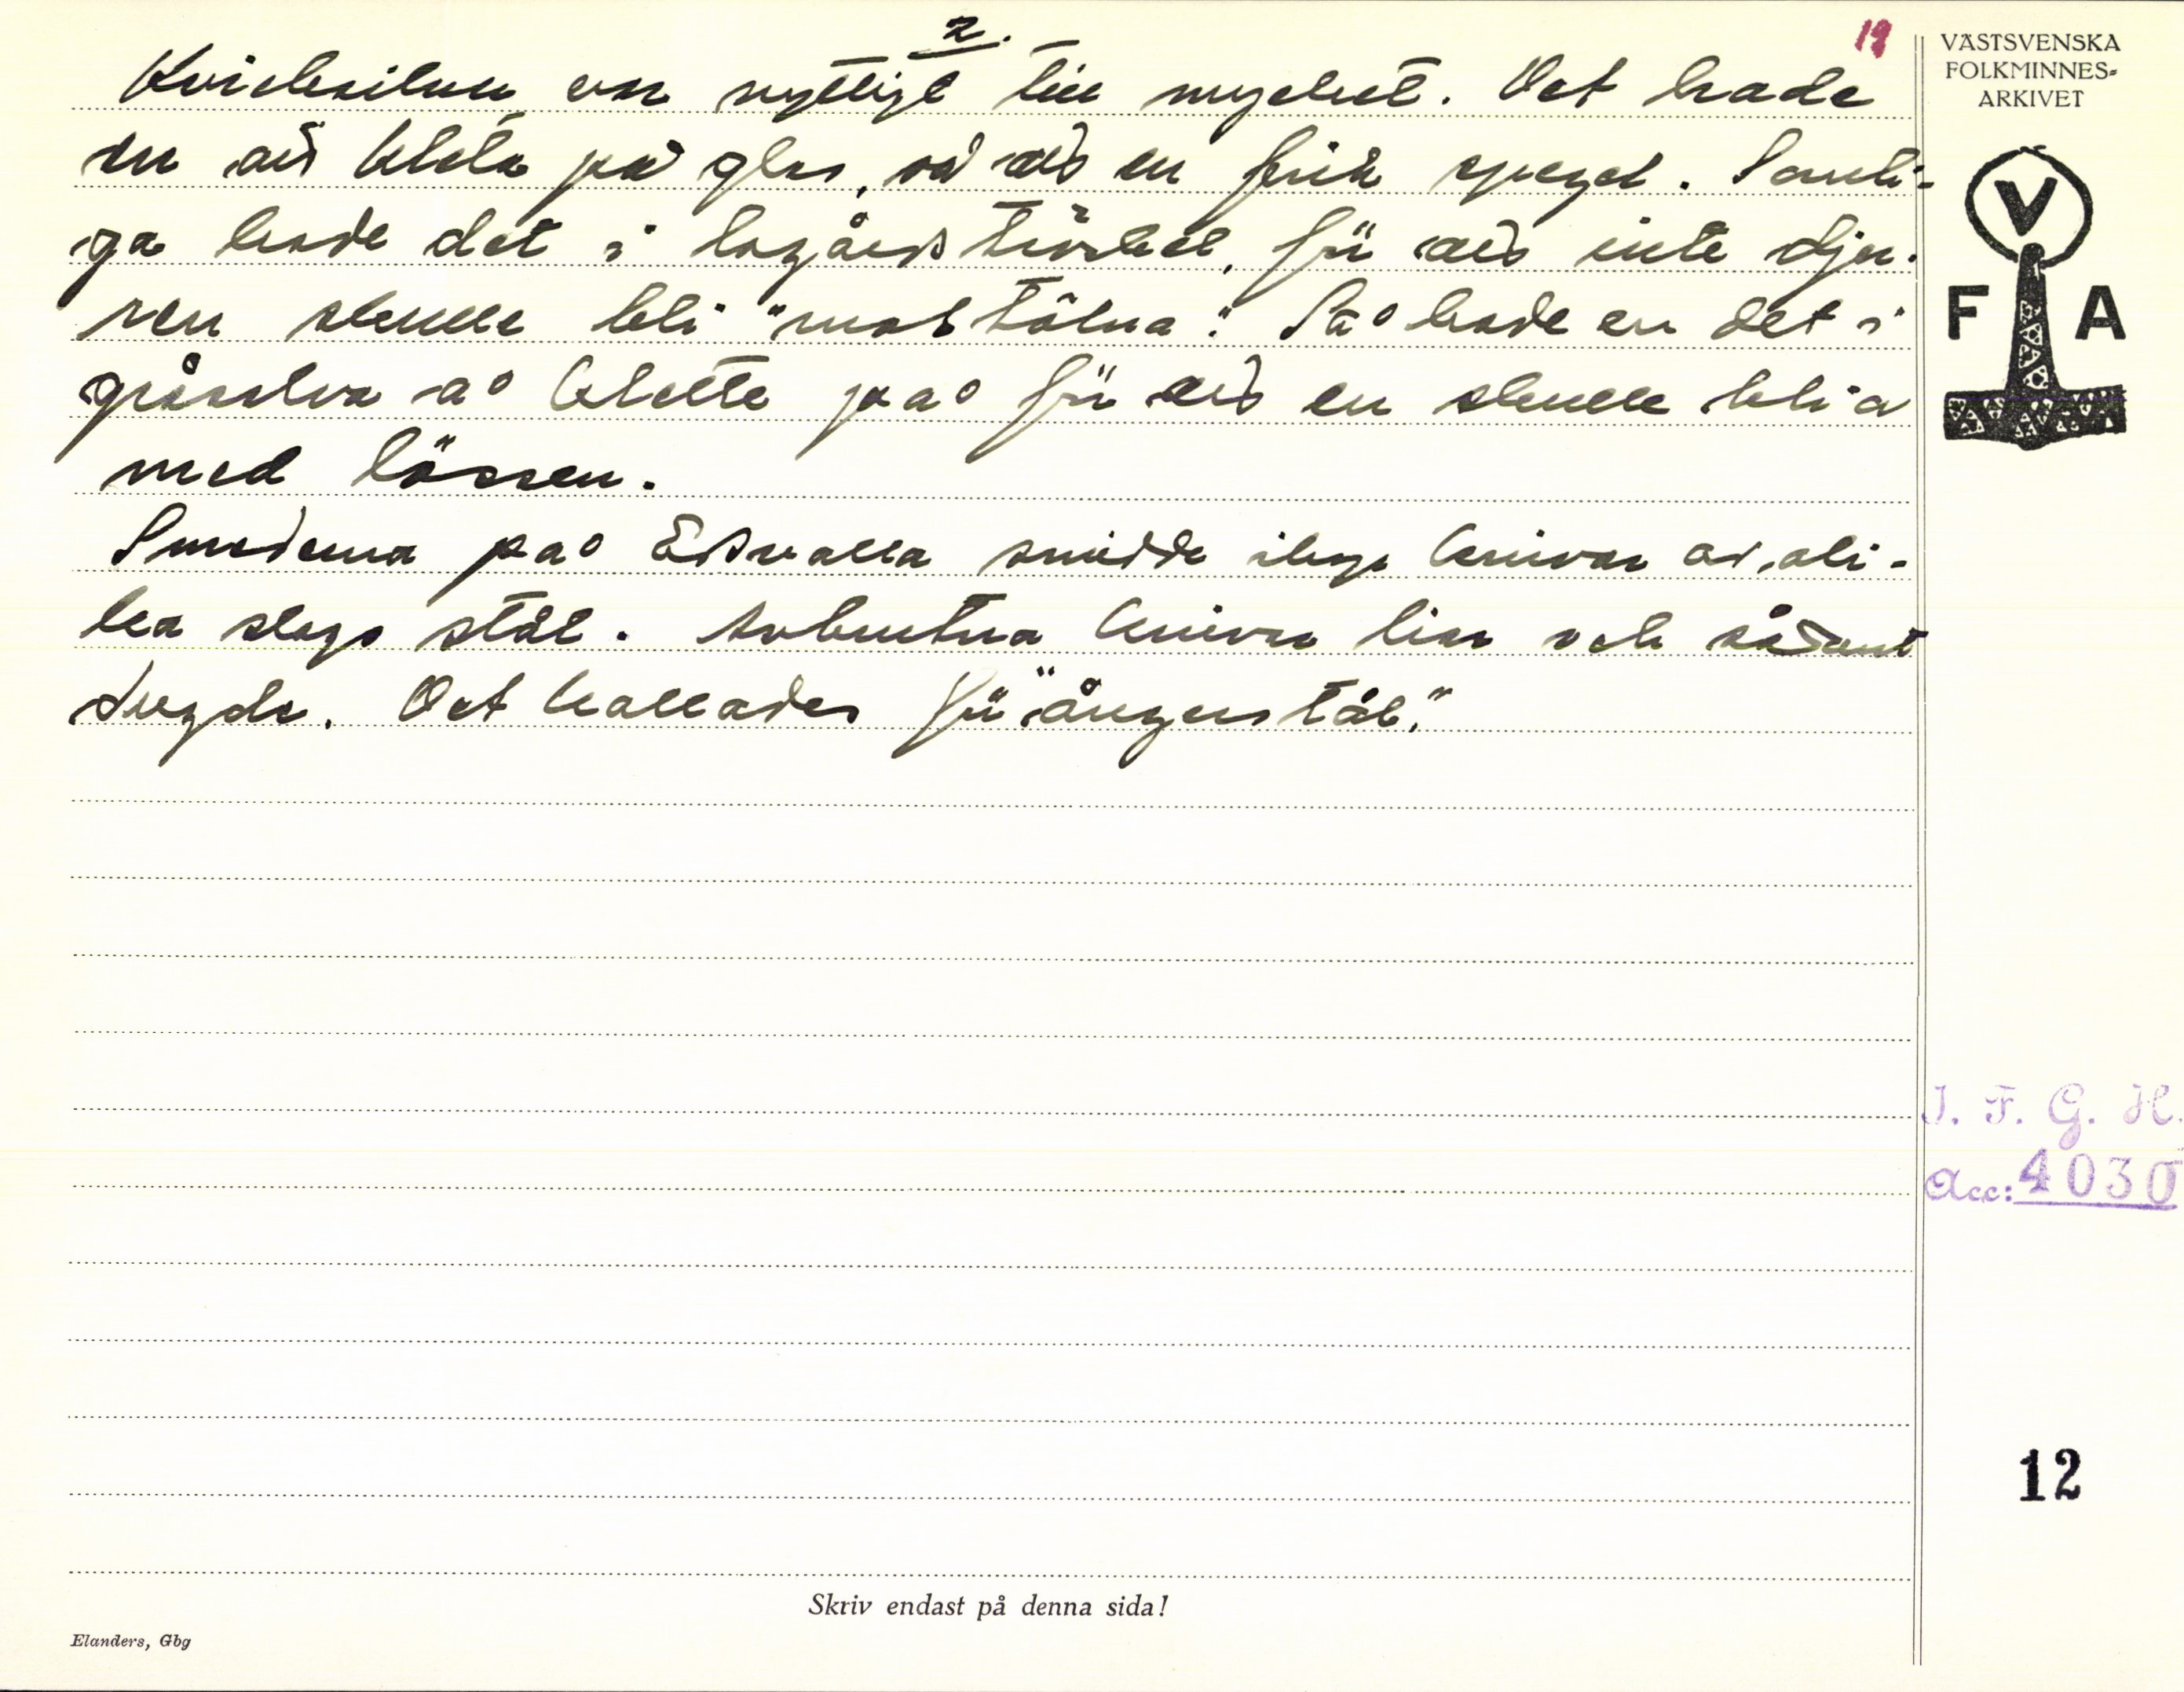 2.
19
Kvicksilver var nyttigt till mycket. Det hade
en att kleta på glas, så att en fick spegel. Somli-
ga hade det i lagårströskel, för att inte dju-
ren skulle bli "mostôlna". Så hade en det i
gråsalva å klette på för att en skulle bli a
med lössen.
Smederna på Edsvalla smidde inga knivar av oli-
ka slags stål. Avbrutna knivar liar och sådant
dugde. Det kallades för "ångerstål."
VÄSTSVENSKA
FOLKMINNES-
ARKIVET
V
F A
I. F. G. H.
Acc: 4030
12
Skriv endast på denna sida!
Elanders, Gbg